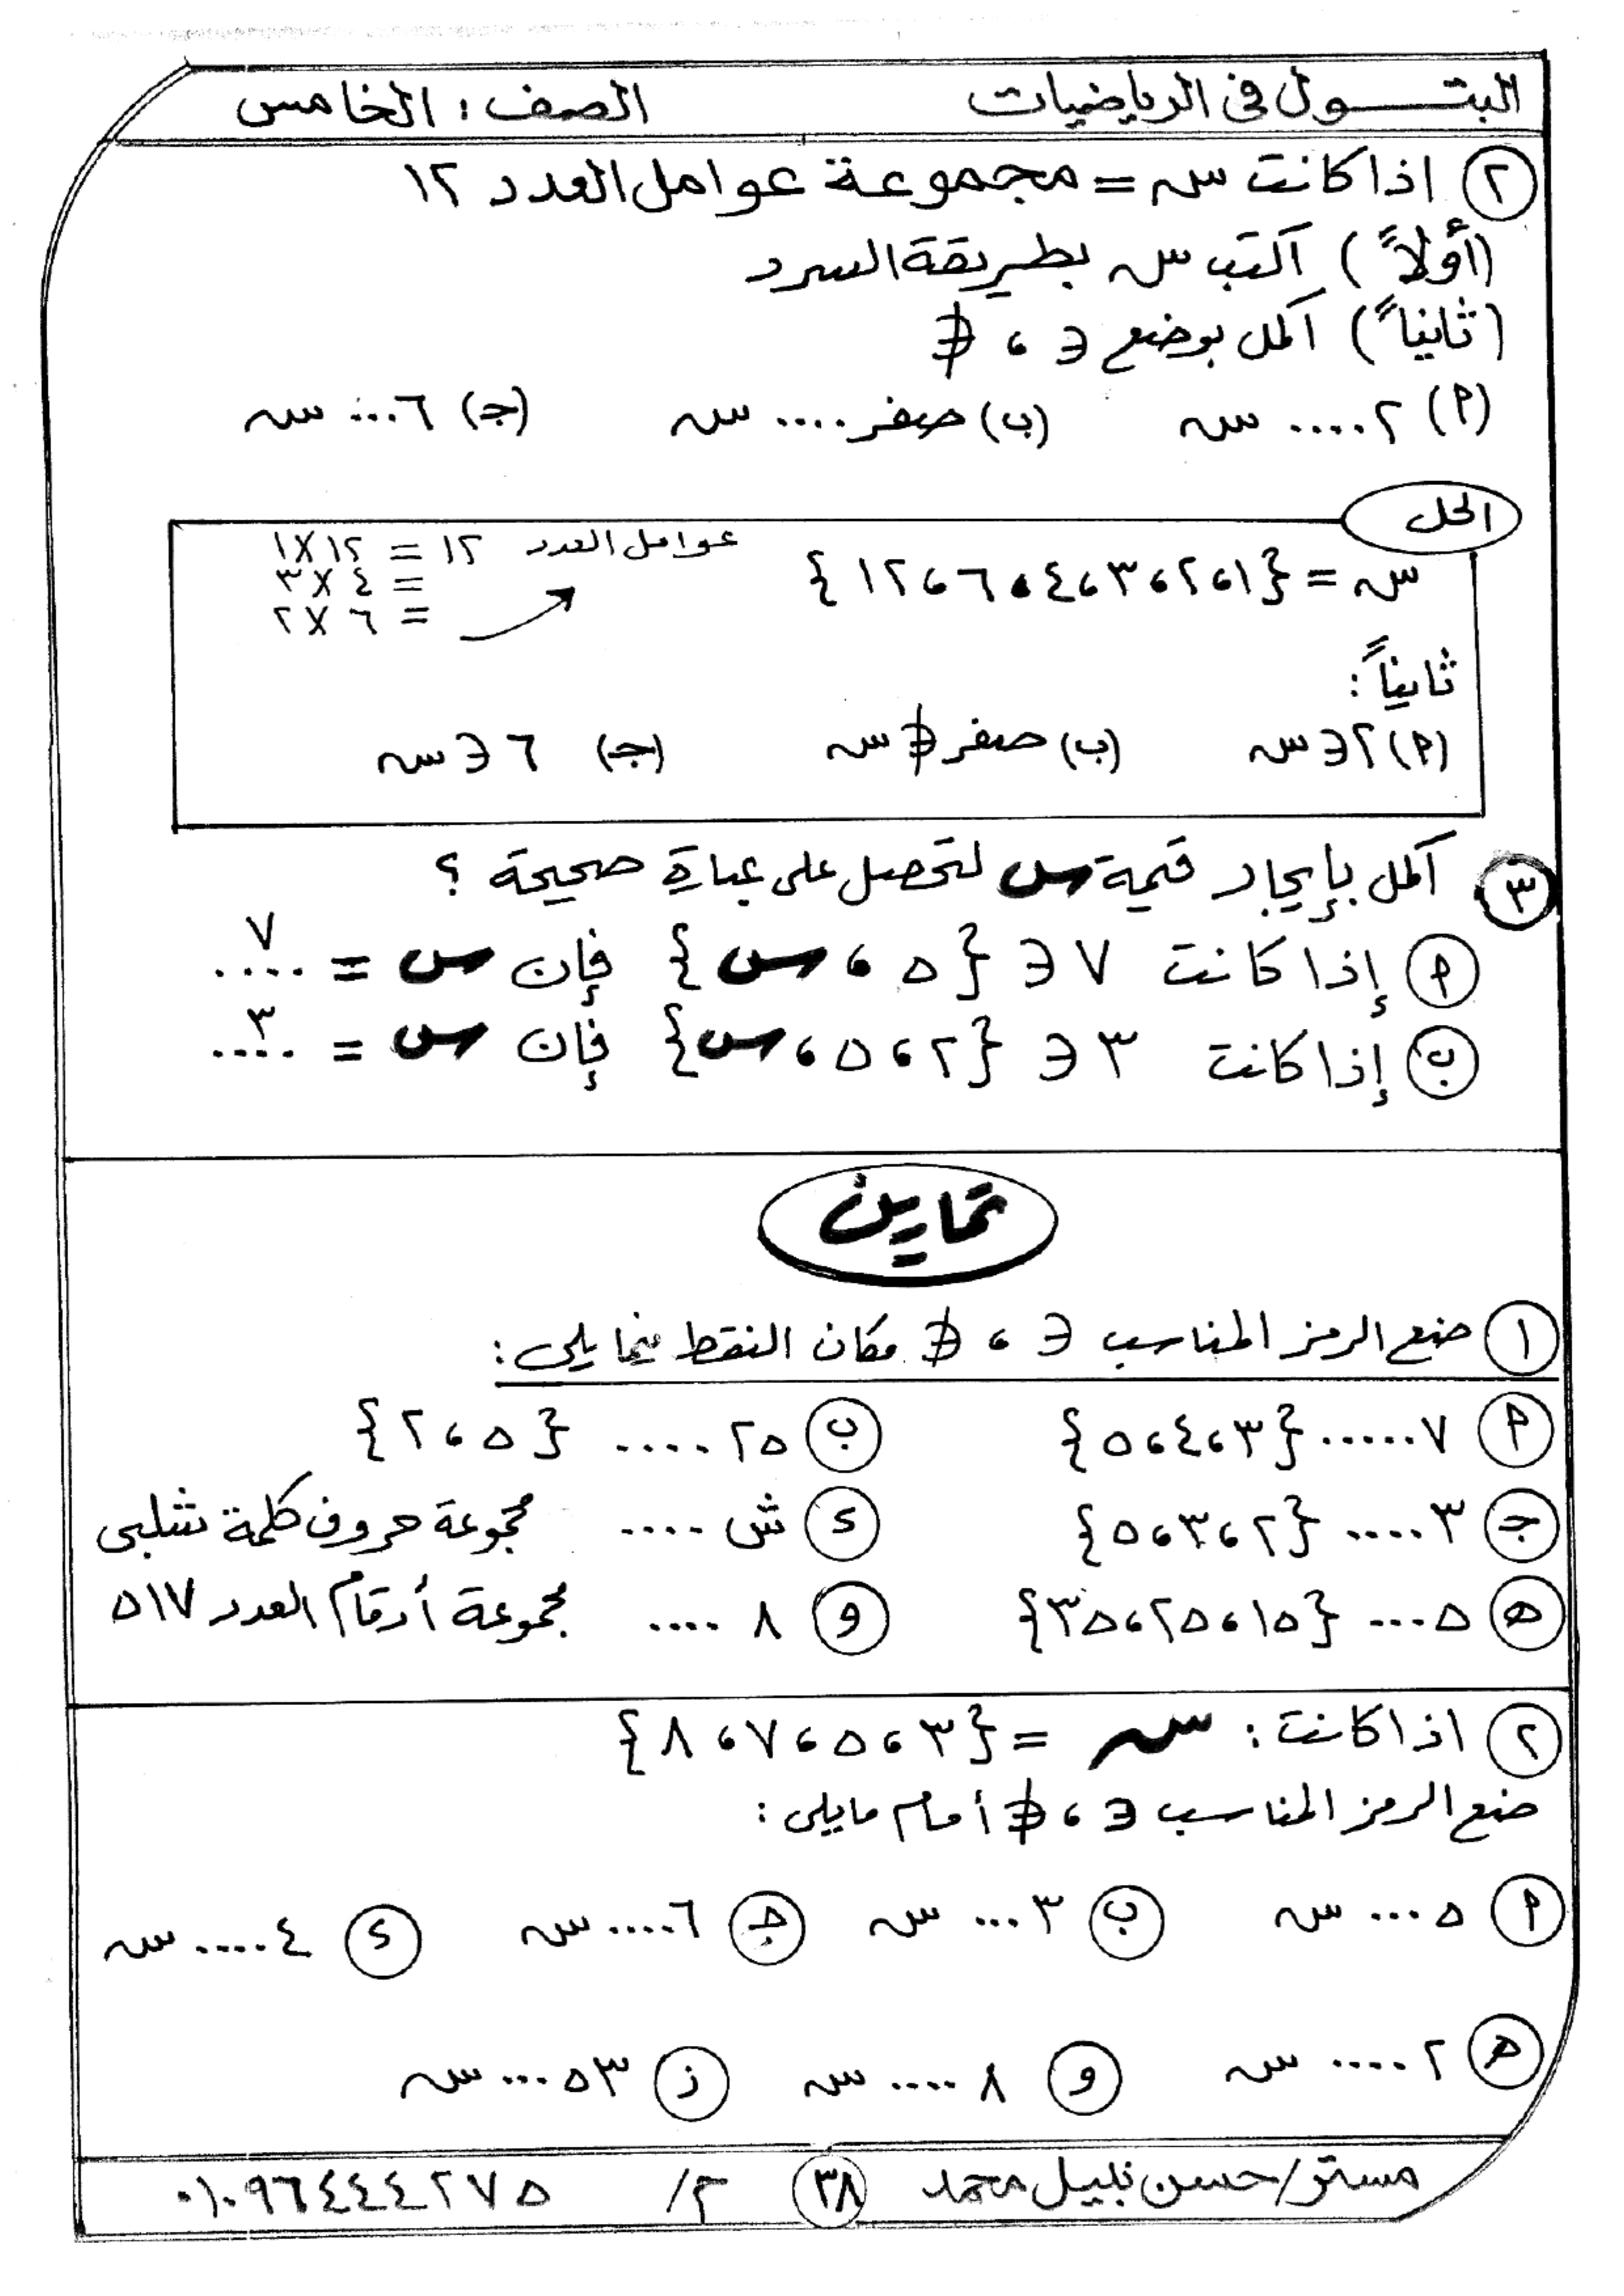 البتول فى الرياضيات الصف : الخامس
٢ اذا كانت سـ = مجموعة عوامل العدد ١٢
(أولاً) أكتب سـ بطريقة السرد
(ثانياً) أكمل بوضع ∈ ، ∉
(أ) ٢ .... سـ (ب) صفر .... سـ (جـ) ٦ ... سـ
الحل
سـ = {١ ، ٢ ، ٣ ، ٤ ، ٦ ، ١٢} عوامل العدد ١٢ = ١٢ × ١
= ٤ × ٣
= ٦ × ٢
ثانياً :
(أ) ٢ ∈ سـ (ب) صفر ∉ سـ (جـ) ٦ ∈ سـ
٣ أكمل بإيجاد قيمة س لتحصل على عبارة صحيحة ؟
أ إذا كانت ٧ ∈ {٥ ، س} فإن س = ..٧..
ب إذا كانت ٣ ∈ {٢ ، ٥ ، س} فإن س = ..٣..
تمارين
١ ضع الرمز المناسب ∈ ، ∉ مكان النقط فيما يلى :
أ ٧ ...... {٣ ، ٤ ، ٥} ب ٢٥ .... {٥ ، ٢}
جـ ٣ .... {٢ ، ٣ ، ٥} د ش .... مجموعة حروف كلمة شلبى
هـ ٥ ... {١٥ ، ٢٥ ، ٣٥} و ٨ .... مجموعة أرقام العدد ٥١٧
٢ اذا كانت : سـ = {٣ ، ٥ ، ٧ ، ٨}
ضع الرمز المناسب ∈ ، ∉ أمام مايلى :
أ ٥ ... سـ ب ٣ ... سـ جـ ٦ .... سـ د ٤ .... سـ
هـ ٢ .... سـ و ٨ .... سـ ز ٥٣ ... سـ
مستر/حسن نبيل محمد ٣٨ م/ ٠١٠٩٦٤٤٤٢٧٥